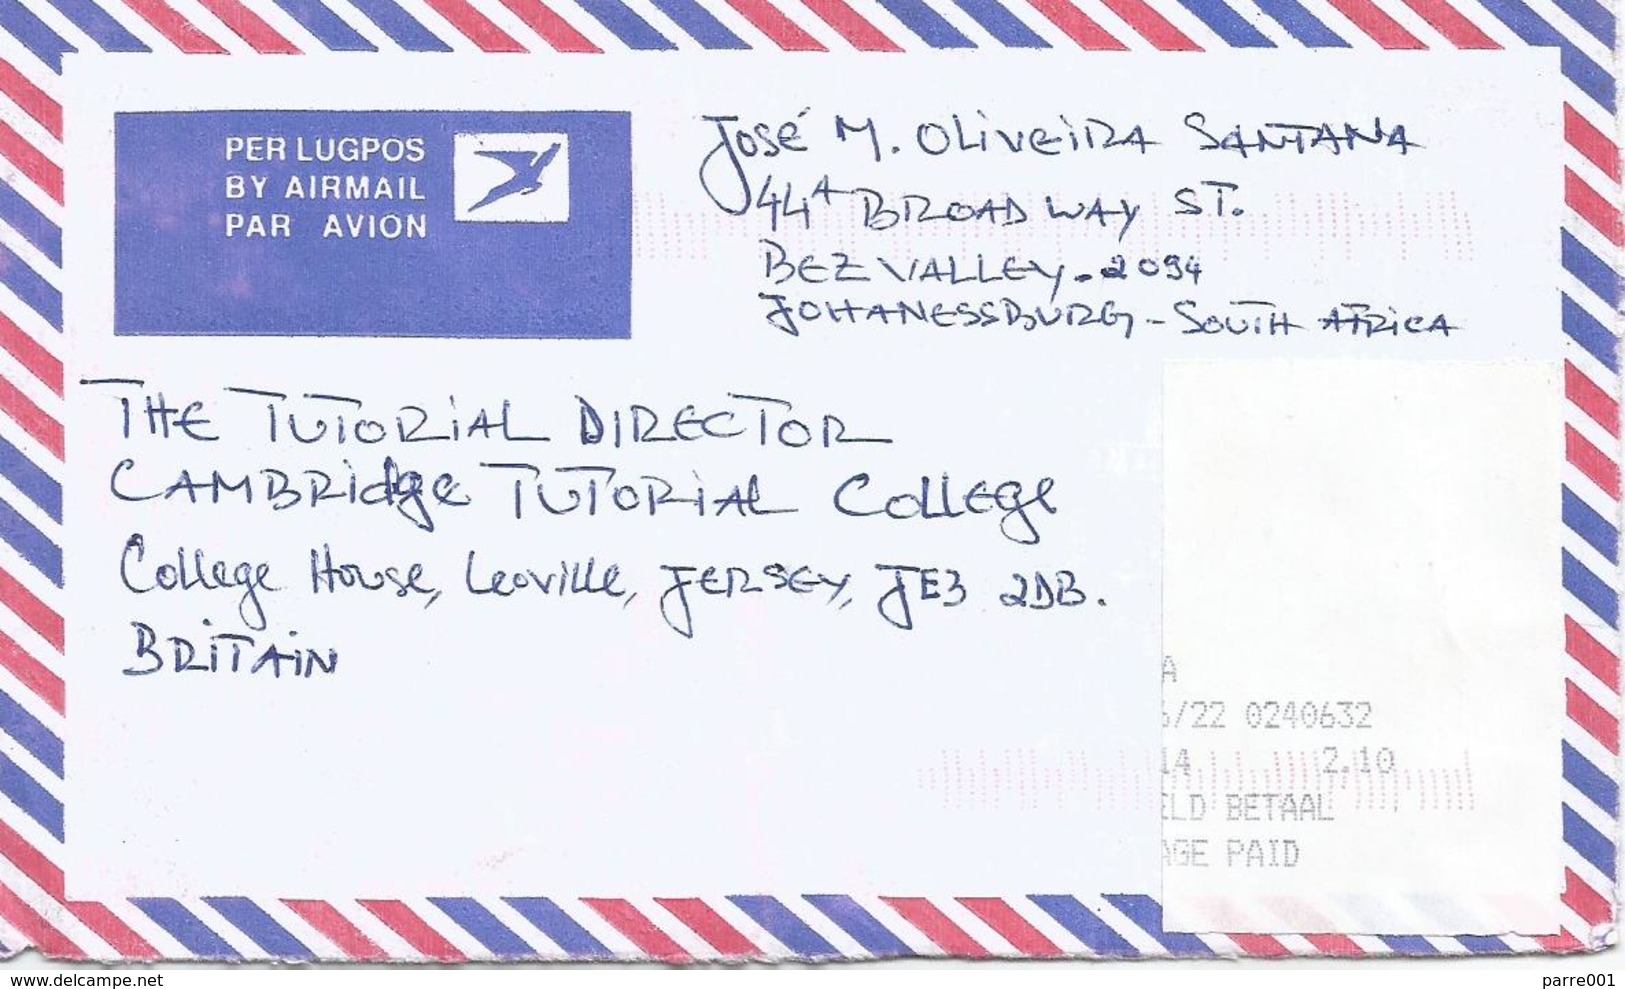 PER LUGPOS
BY AIRMAIL
PAR AVION
José M. OLiveiRA SANTANA
44A BROADWAY ST.
BEZ VALLEY - 2094
JOHANESSBURG - SOUTH AFRICA
THE TUTORIAL DIRECTOR
CAMBRidge TUTORIAL College
College House, Leoville, JERSEY, JE3 2DB.
BRITAIN
A
6/22 0240632
14 2.10
ELD BETAAL
AGE PAID
parre001